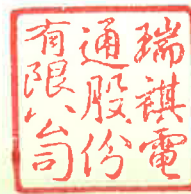 瑞祺電
通股份
有限公司